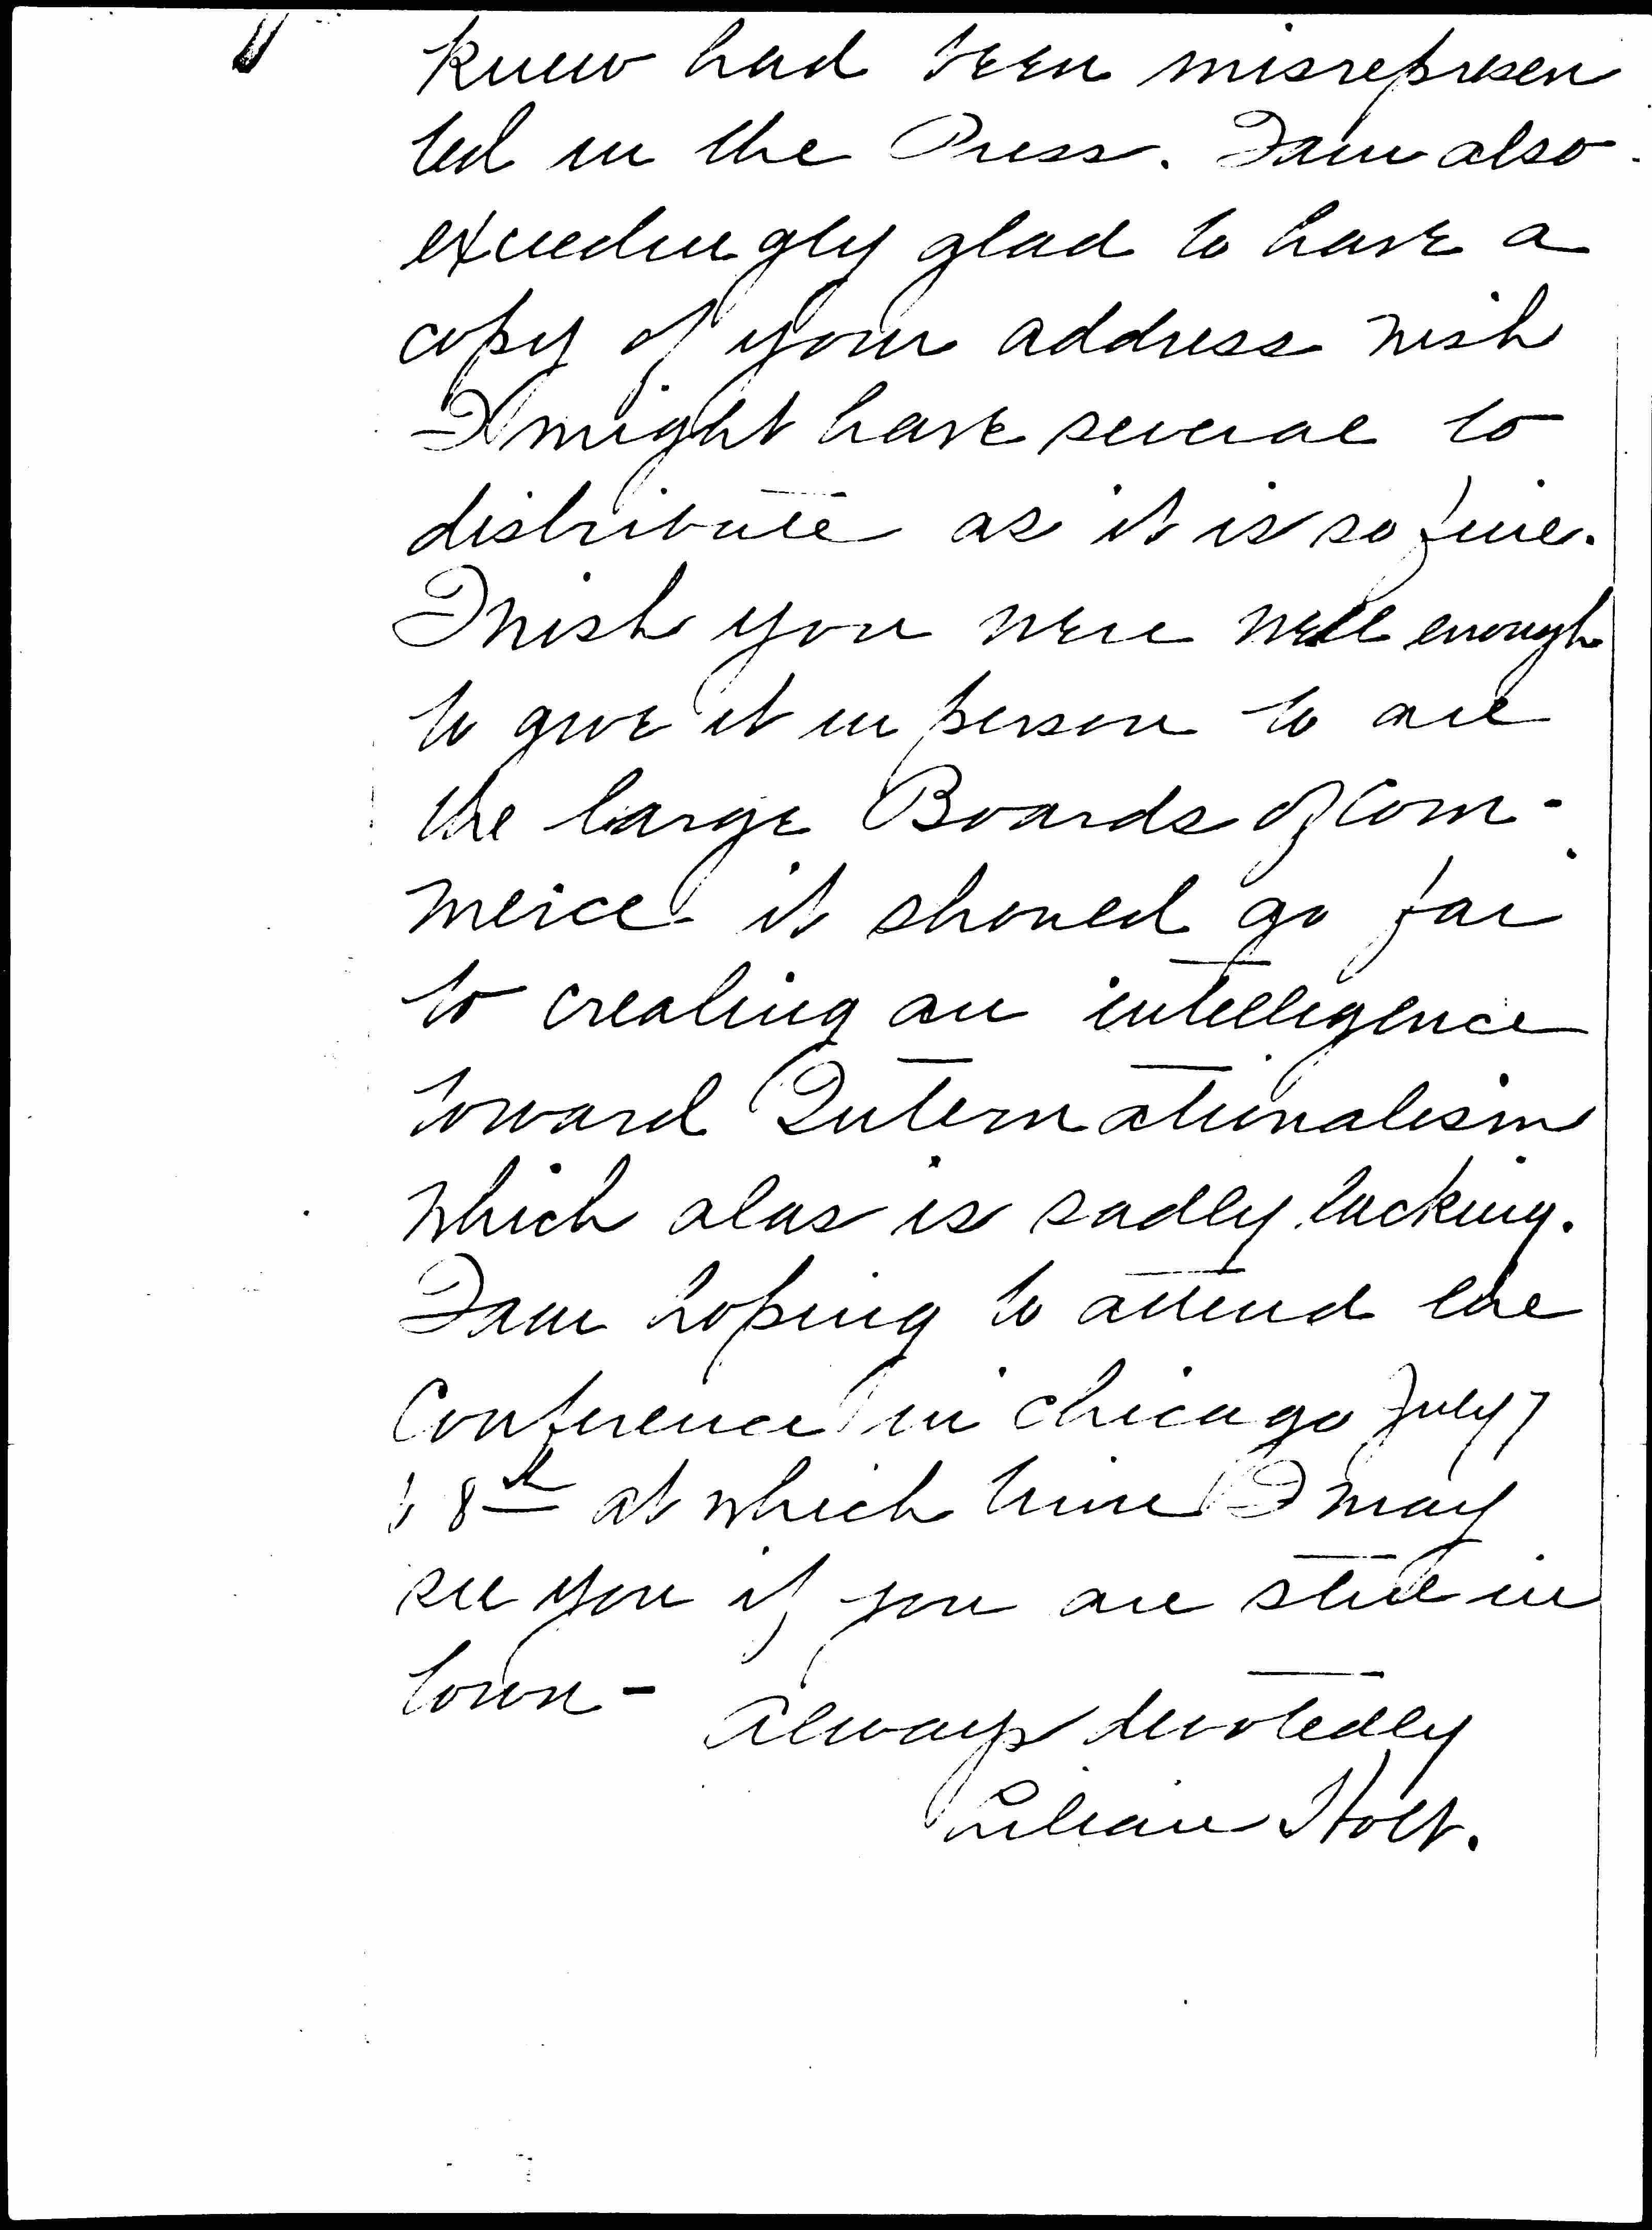 knew had been misrepresen
ted in the Press. I am also
exceedingly glad to have a
copy of your address wish
I might have several to
distribute as it is so fine.
I wish you were well enough
to give it in person to all
the large Boards of Com-
merce - it should go far
to creating an intelligence
toward Internationalism
which alas is sadly lacking.
I am hoping to attend the
Conference in Chicago July 7
to 8th at which time I may
see you if you are still in
town -
Always devotedly
Lilian Holt.